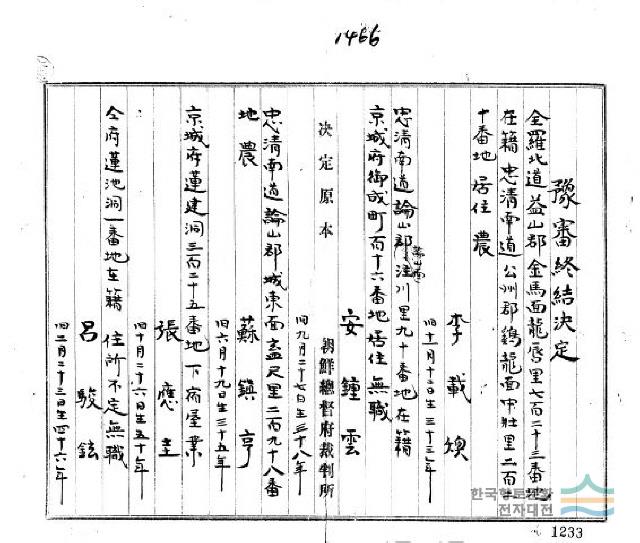 1466
豫審終結決定
全羅北道益山郡金馬面龍唇里七百二十三番地
在籍 忠清南道公州郡鷄龍面中壯里二百
十番地居住 農
李載煥
旧十一月十二日生三十三年
忠清南道論山郡論山面注川里九十番地在籍
京城府御成町百十六番地居住 無職
安鍾雲
旧九月二十七日生三十八年
決定原本
朝鮮總督府裁判所
忠清南道論山郡城東面盖尺里二百九十八番
地 農
蘇鎭亨
旧六月十九日生三十五年
京城府蓮建洞三百二十五番地 下宿屋業
張應圭
旧十月二十六日生五十年
仝府蓮池洞一番地在籍 住所不定無職
呂駿鉉
旧二月二十三日生四十六年
한국향토문화
전자대전
1233